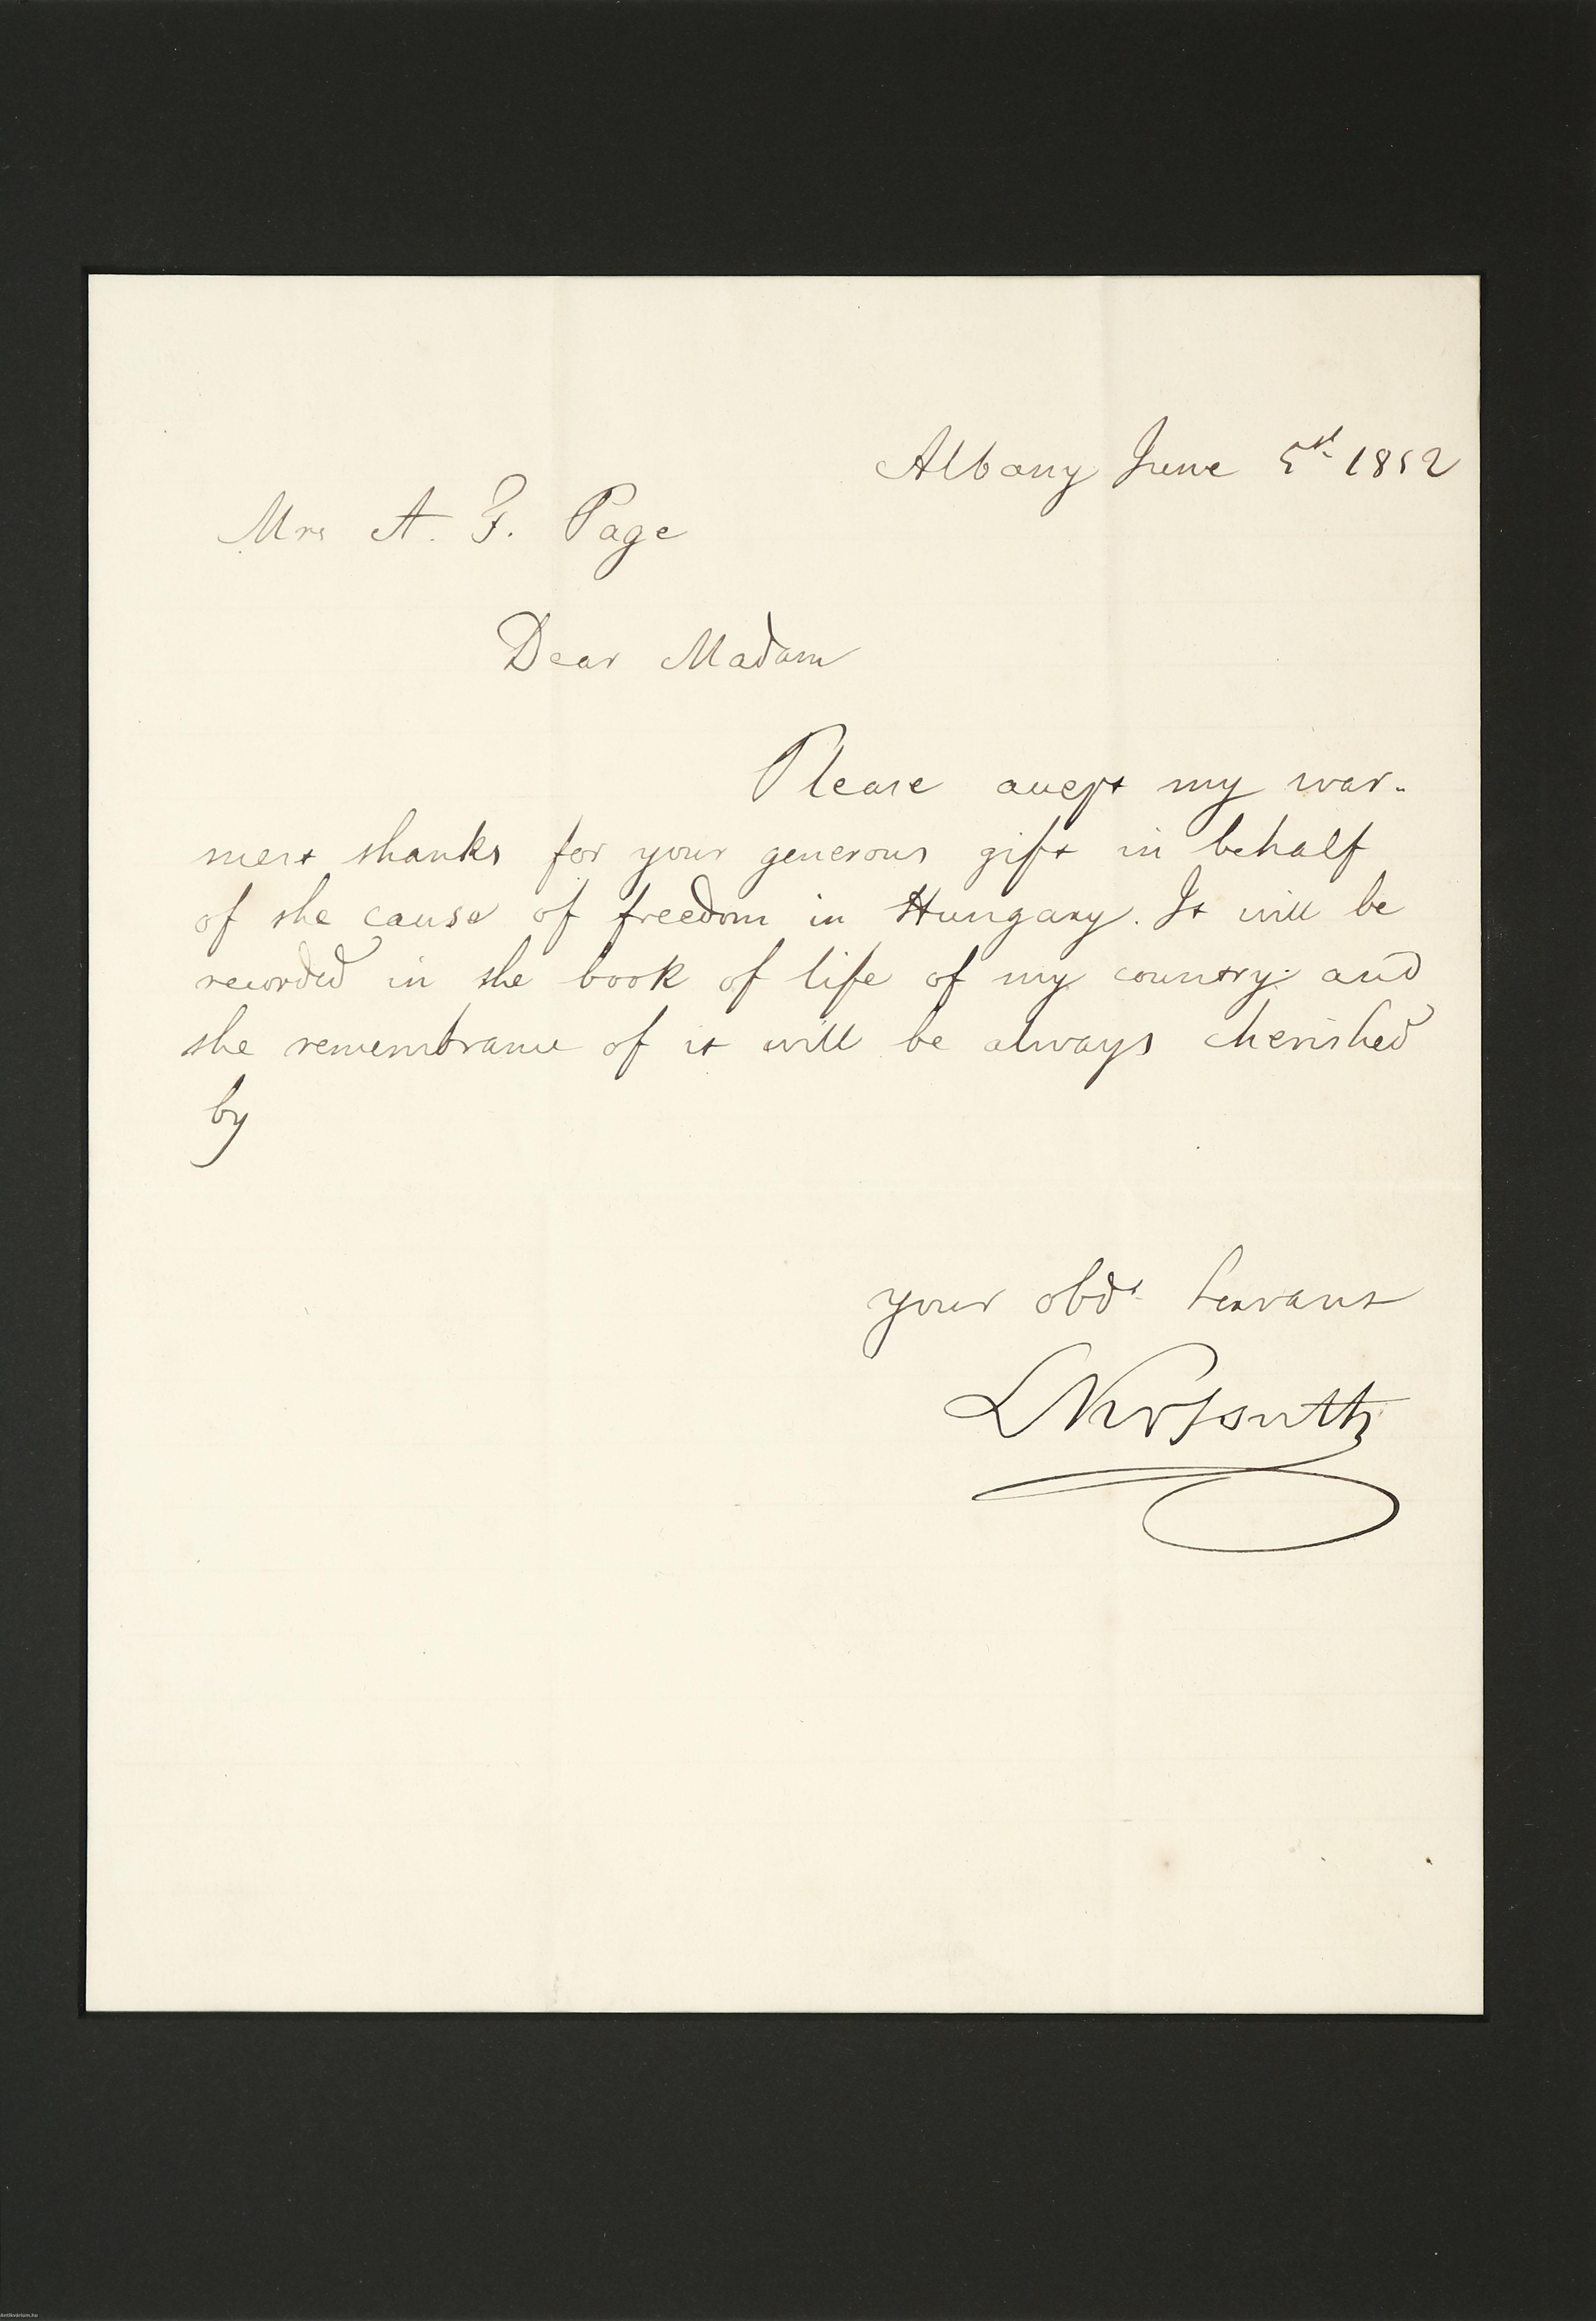 Albany June 5st 1852
Mrs A. F. Page
Dear Madam
Please accept my war-
mest thanks for your generous gift in behalf
of the cause of freedom in Hungary. It will be
recorded in the book of life of my country and
the remembrance of it will be always cherished
by
your obdt Servant
L Kossuth
Antikvarium.hu